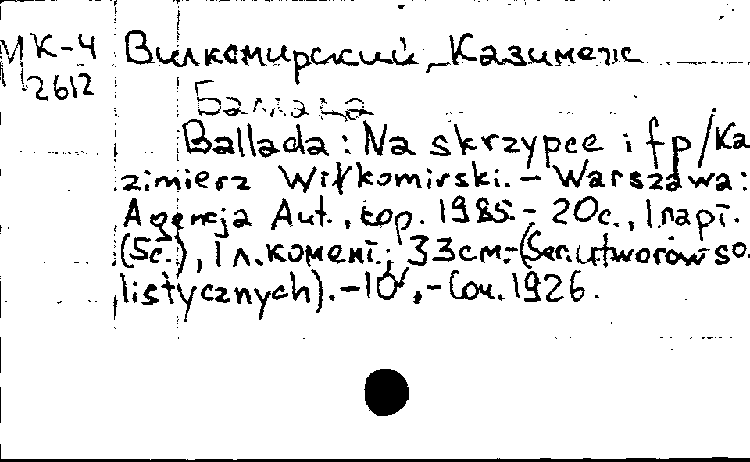 МК-4 Вилкомирский, Казимеж
2612
Баллада
Ballada : Na skrzypce i fp / Ka
zimierz Wiłkomirski. – Warszawa :
Agencja Aut., cop. 1985. – 20с., 1 парт.
(5с.), 1 л. комент.; 33см. – (Ser. utworów so
listycznych). – 10', – Соч. 1926.